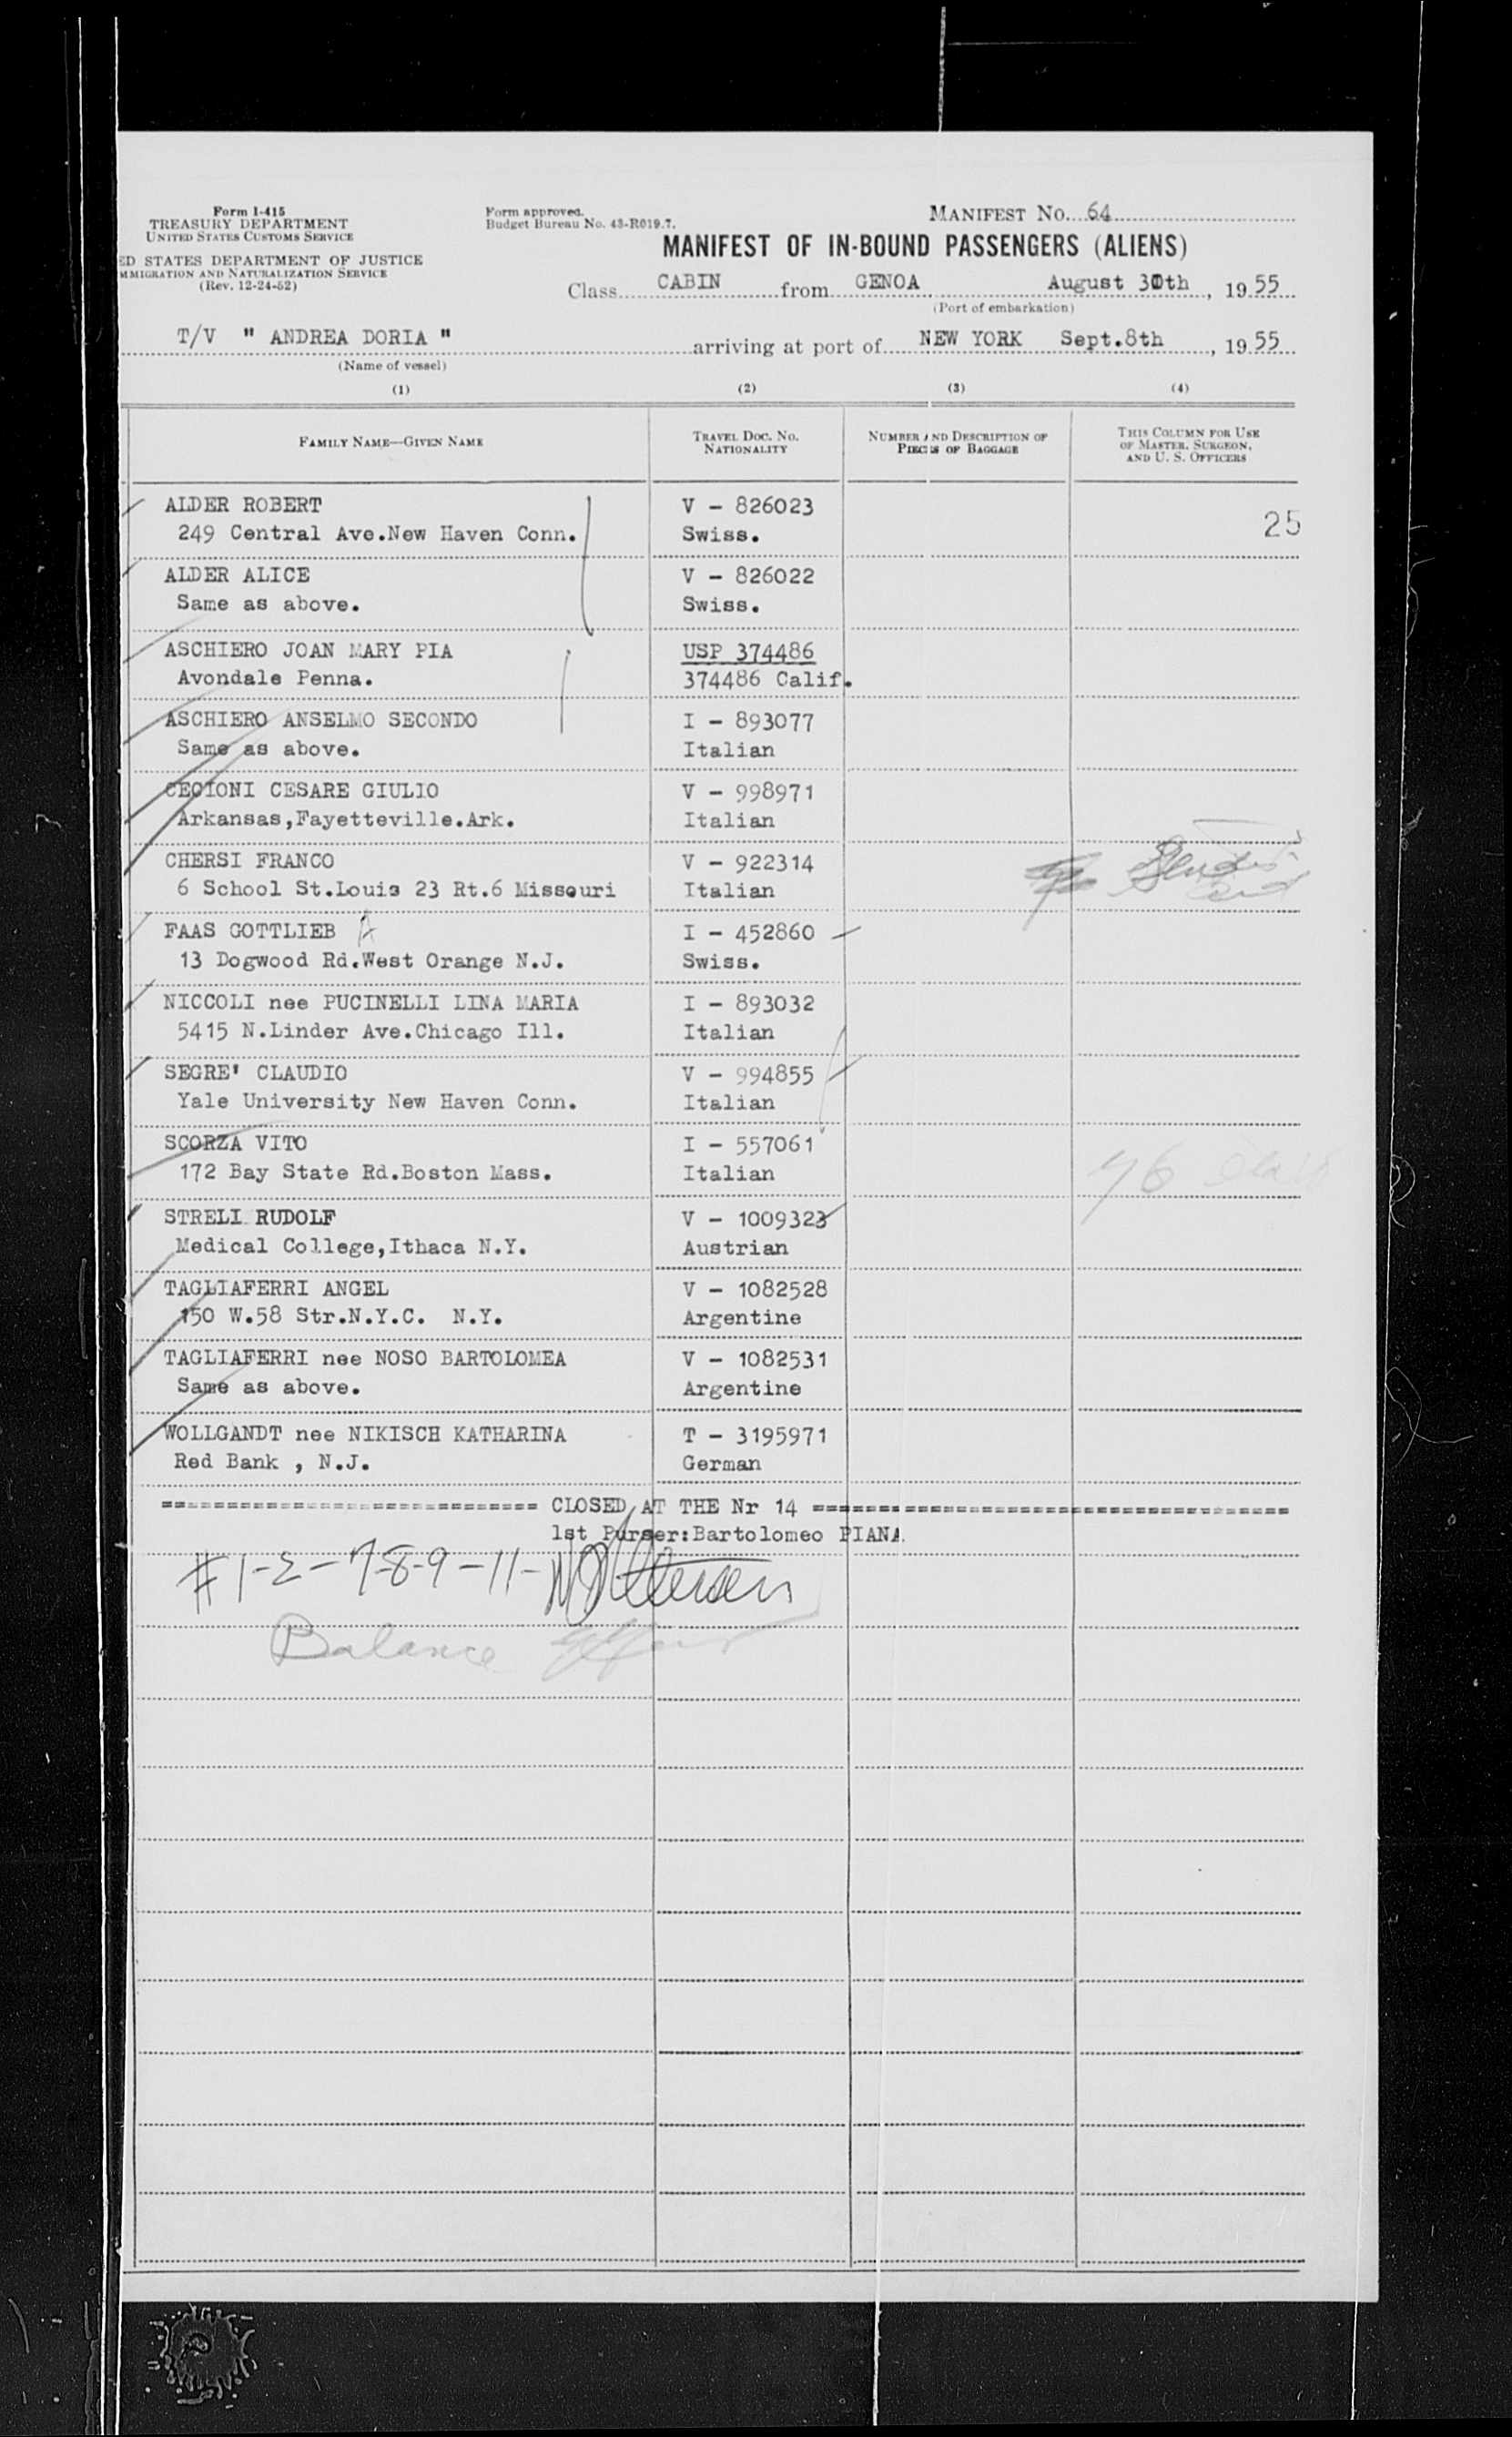 Form I-415
TREASURY DEPARTMENT
UNITED STATES CUSTOMS SERVICE
ED STATES DEPARTMENT OF JUSTICE
MMIGRATION AND NATURALIZATION SERVICE
(Rev. 12-24-52)
Form approved.
Budget Bureau No. 43-R019.7.
MANIFEST NO. 64
MANIFEST OF IN-BOUND PASSENGERS (ALIENS)
Class CABIN from GENOA August 30th, 1955
(Port of embarkation)
T/V " ANDREA DORIA " arriving at port of NEW YORK Sept.8th, 1955
(Name of vessel)
(1) (2) (3) (4)
FAMILY NAME—GIVEN NAME
TRAVEL DOC. NO.
NATIONALITY
NUMBER AND DESCRIPTION OF
PIECES OF BAGGAGE
THIS COLUMN FOR USE
OF MASTER, SURGEON,
AND U. S. OFFICERS
ALDER ROBERT V - 826023
249 Central Ave.New Haven Conn. Swiss. 25
ALDER ALICE V - 826022
Same as above. Swiss.
ASCHIERO JOAN MARY PIA USP 374486
Avondale Penna. 374486 Calif.
ASCHIERO ANSELMO SECONDO I - 893077
Same as above. Italian
CECIONI CESARE GIULIO V - 998971
Arkansas,Fayetteville.Ark. Italian
CHERSI FRANCO V - 922314
6 School St.Louis 23 Rt.6 Missouri Italian
FAAS GOTTLIEB A I - 452860
13 Dogwood Rd.West Orange N.J. Swiss.
NICCOLI nee PUCINELLI LINA MARIA I - 893032
5415 N.Linder Ave.Chicago Ill. Italian
SEGRE' CLAUDIO V - 994855
Yale University New Haven Conn. Italian
SCORZA VITO I - 557061
172 Bay State Rd.Boston Mass. Italian
STRELI RUDOLF V - 1009323
Medical College,Ithaca N.Y. Austrian
TAGLIAFERRI ANGEL V - 1082528
150 W.58 Str.N.Y.C. N.Y. Argentine
TAGLIAFERRI nee NOSO BARTOLOMEA V - 1082531
Same as above. Argentine
WOLLGANDT nee NIKISCH KATHARINA T - 3195971
Red Bank , N.J. German
============================= CLOSED AT THE Nr 14 =====================================
1st Purser:Bartolomeo PIANA
# 1-2-7-8-9-11-
Balance